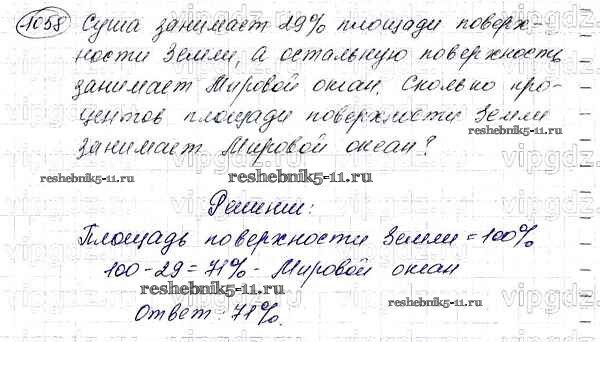 1058 Суша занимает 29% площади поверх-
ности Земли, а остальную поверхность
занимает Мировой океан. Сколько про-
центов площади поверхности Земли
reshebnik5-11.ru
занимает Мировой океан?
reshebnik5-11.ru
reshebnik5-11.ru
Решении:
Площадь поверхности Земли = 100%
100 - 29 = 71% - Мировой океан
reshebnik5-11.ru
Ответ: 71%.
reshebnik5-11.ru
vipgdz
vipgdz
vipgdz